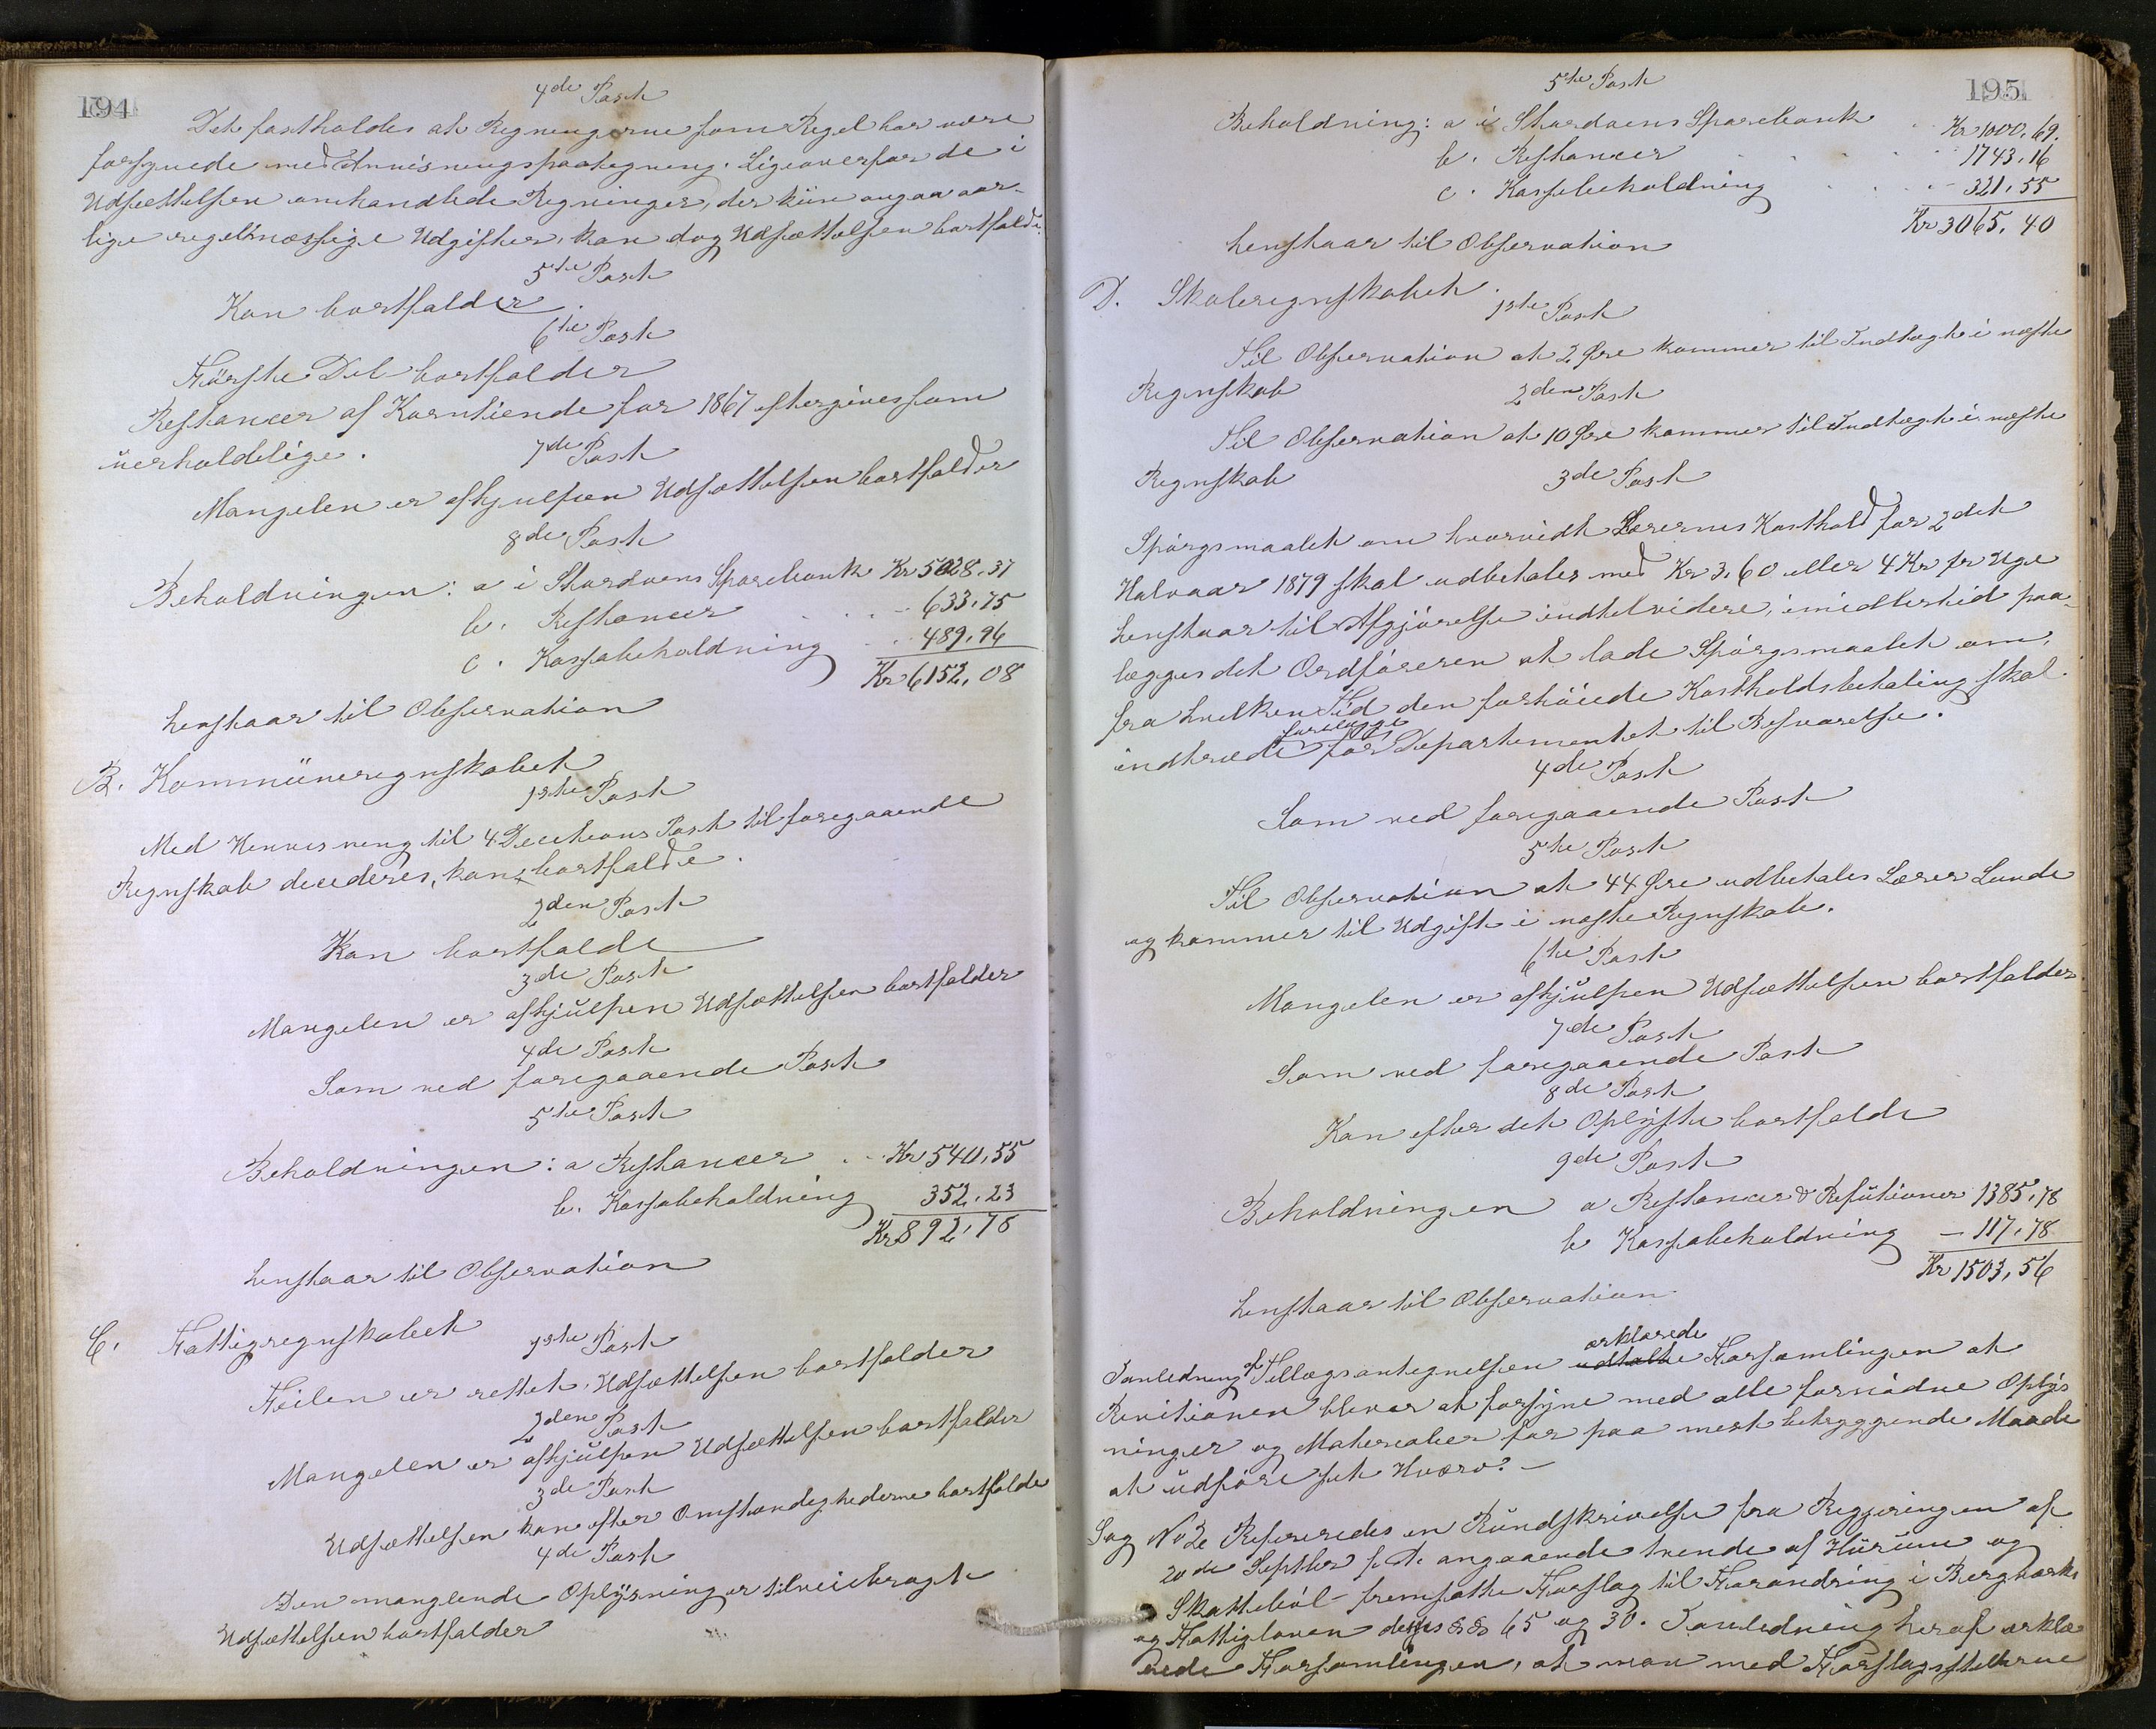 194
4de Post
Det fastholdes at Regningerne som Regel bør være
forsynede med Anvisningspaategning. Ligeoverfor de i
Udsættelsen omhandlede Regninger, der kün angaa aar-
lige regelmæssige Udgifter, kan dog Udsættelsen bortfalde.
5te Post
Kan bortfalder.
6te Post
Förste Del bortfalder
Restancer af Korntiende for 1867 eftergives som
üerholdelige.
7de Post
Mangelen er afhjulpen Udsættelsen bortfalder
8de Post
Beholdningen: a i Skardoens Sparebank Kr 5028.37
b. Restancer . . - 633.75
c. Kassabeholdning - 489.96
Kr 6152.08
henstaar til Observation
B. Kommüneregnskabet
1ste Post
Med Henvisning til 4 Decisions Post til foregaaende
Regnskab decideres, kan bortfalde.
2den Post
Kan bortfalde
3de Post
Mangelen er afhjülpen Udsættelsen bortfalder
4de Post
Som ved foregaaende Post
5te Post
Beholdningen: a Restancer . . Kr 540,55
b. Kassabeholdning 352,23
Kr 892,78
henstaar til Observation
C. Fattigregnskabet
1ste Post
Feilen er rettet, Udsættelsen bortfalder
2den Post
Mangelen er afhjülpen Udsættelsen bortfalder
3de Post
Udsættelsen kan efter Omstændighederne bortfalde
4de Post
Den manglende Oplysning er tilveiebragt
Udsættelsen bortfalder
195
5te Post
Beholdning: a i Skardoens Sparebank . . Kr 1000.69.
b. Restancer . . . . 1743.16
c. Kassabeholdning . . . - 321.55
Kr 3065.40
henstaar til Observation
D. Skoleregnskabet.
1ste Post
Til Observation at 2 Øre kommer til Indtægt i næste
Regnskab
2den Post
Til Observation at 10 Øre kommer til Indtægt i næste
Regnskab
3de Post
Spörgsmaalet om hvorvidt Lærernes Kosthold for 2det
Halvaar 1879 skal udbetales med Kr 3.60 eller 4 Kr pr Uge
henstaar til Afgjörelse indtilvidere, imidlertid paa-
lægges det Ordföreren at lade Spörgsmaalet om,
fra hvilken Tid den forhöiede Kostholdsbetaling skal
indtræde forelægge for Departementet til Besvarelse.
4de Post
Som ved foregaaende Post
5te Post
Til Observation at 44 Øre udbetales Lærer Lunde
og kommer til Udgift i næste Regnskab.
6te Post
Mangelen er afhjülpen Udsættelsen bortfalder
7de Post
Som ved foregaaende Post
8de Post
Kan efter det Oplyste bortfalde
9de Post
Beholdningen a Restancer & Refütioner 1385,78
b Kassabeholdning - 117,78
Kr 1503,56
henstaar til Observation
Ianledning af Tillægsantegnelsen udtalte erklærede Forsamlingen at
Revitionen bliver at forsyne med alle fornödne Oplys
ninger og Materialier for paa mest betryggende Maade
at üdföre sit Hværv. -
Sag No 2 Refereredes en Ründskrivelse fra Regjeringen af
20de Septbr f. A. angaaende trende af Hürüm og
Skattebøl fremsatte Forslag til Forandring i Bergværks
og Fattigloven deres §§ 65 og 30. Ianledning heraf erklæ
rede Forsamlingen, at man med Forslagsstillerne